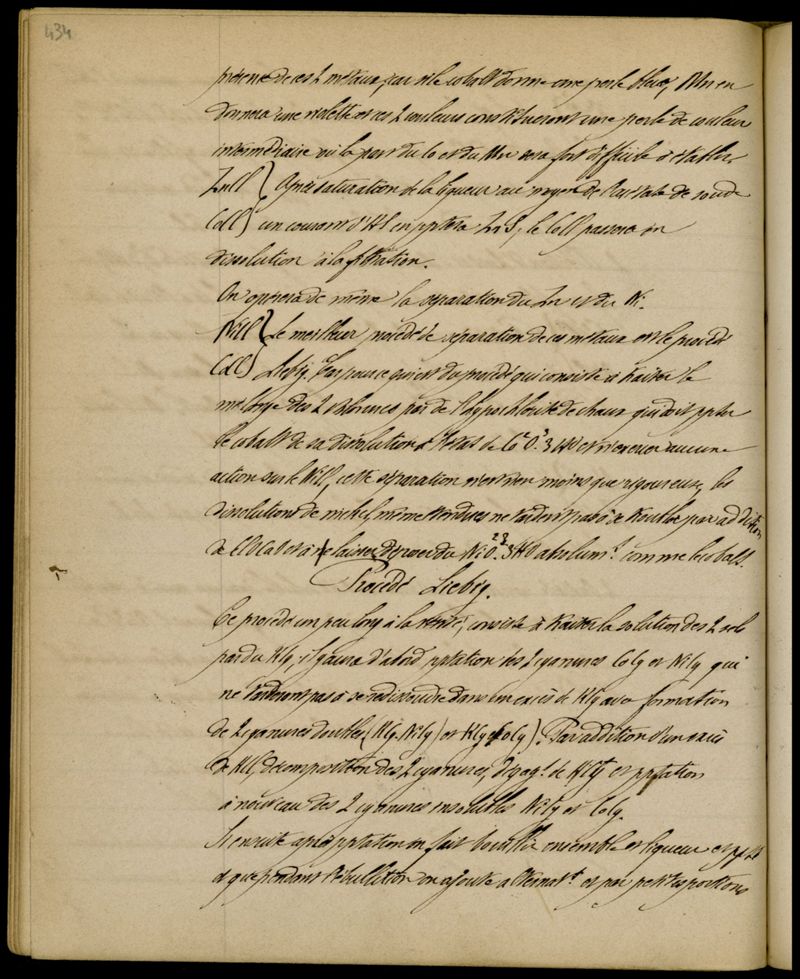 434
présence de ces 2 métaux, car si le cobalt donne une perle bleue, Mn en
donnera une violette et ces 2 couleurs constitueront une perle de couleur
intermédiaire où la part du Co et du Mn sera fort difficile à établir
ZnCl } Après saturation de la liqueur au moyen de l'acétate de soude
CoCl } un courant d'HS en pptera ZnS, le CoCl passera en
dissolution à la filtration.
On opérera de même la séparation du Zn et du Ni.
NiCl } Le meilleur procédé de séparation de ces métaux est le procédé
CoCl } Liebig. Car pour ce qui est du procédé qui consiste à traiter le
mélange des 2 chlorures par de l'hypochlorite de chaux qui doit ppter
le cobalt de sa dissolution à l'état de Co2O3, 3HO et n'exercer aucune
action sur le NiCl, cette séparation n'est rien moins que rigoureuse, les
dissolutions de nickel même étendues ne tardent pas à se troubler par addition
de ClOCaO et à laisser déposer du Ni2O3, 3HO absolumt comme le cobalt.
Procédé Liebig.
Ce procédé un peu long à la vérité, consiste à traiter la solution des 2 sels
par du KCy, il y aura d'abord pptation des 2 cyanures CoCy et NiCy qui
ne tarderont pas à se redissoudre dans un excès de KCy avec formation
de 2 cyanures doubles (KCy, NiCy) et KCy, CoCy). Par addition d'un excès
de HCl, décomposition des 2 cyanures, dégagt de HCy et pptation
à nouveau des 2 cyanures insolubles NiCy et CoCy.
Si ensuite après pptation on fait bouillir ensemble et liqueur et ppté
et que pendant l'ébullition on ajoute alternatt et par petites portions